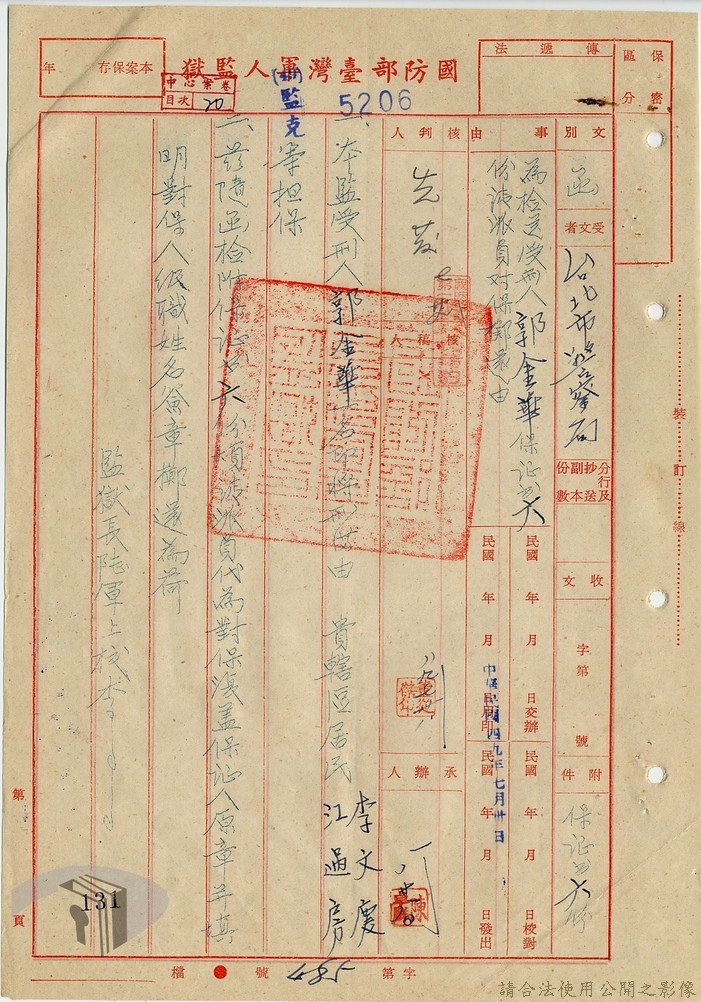 國防部臺灣軍人監獄
保密區分
傳遞法
本案保存 年
案卷中心
目次 20
監克
5206
文別 函
受文者 台北市警察局
分行及抄送副本份數
收文 字第 號
附件 保証書六份
事由
為檢送受刑人郭金華保证書六
份請派員对保擲還由
民國 年 月 日交辦
民國 年 月 日校對
中華民國四九年七月卅日
民國 年 月 日發出
核判人
先發
核稿人
承辦人
一、本監受刑人郭金華一名即將刑滿由 貴轄區居民 李文慶 江過房
等担保
二、茲隨函檢附保证書六份煩請派員代為對保後蓋保证人原章并填
明對保人級職姓名簽章擲還為荷
監獄長陸軍上校李
裝訂線
第 頁
131
檔 號 字第 585
請合法使用公開之影像